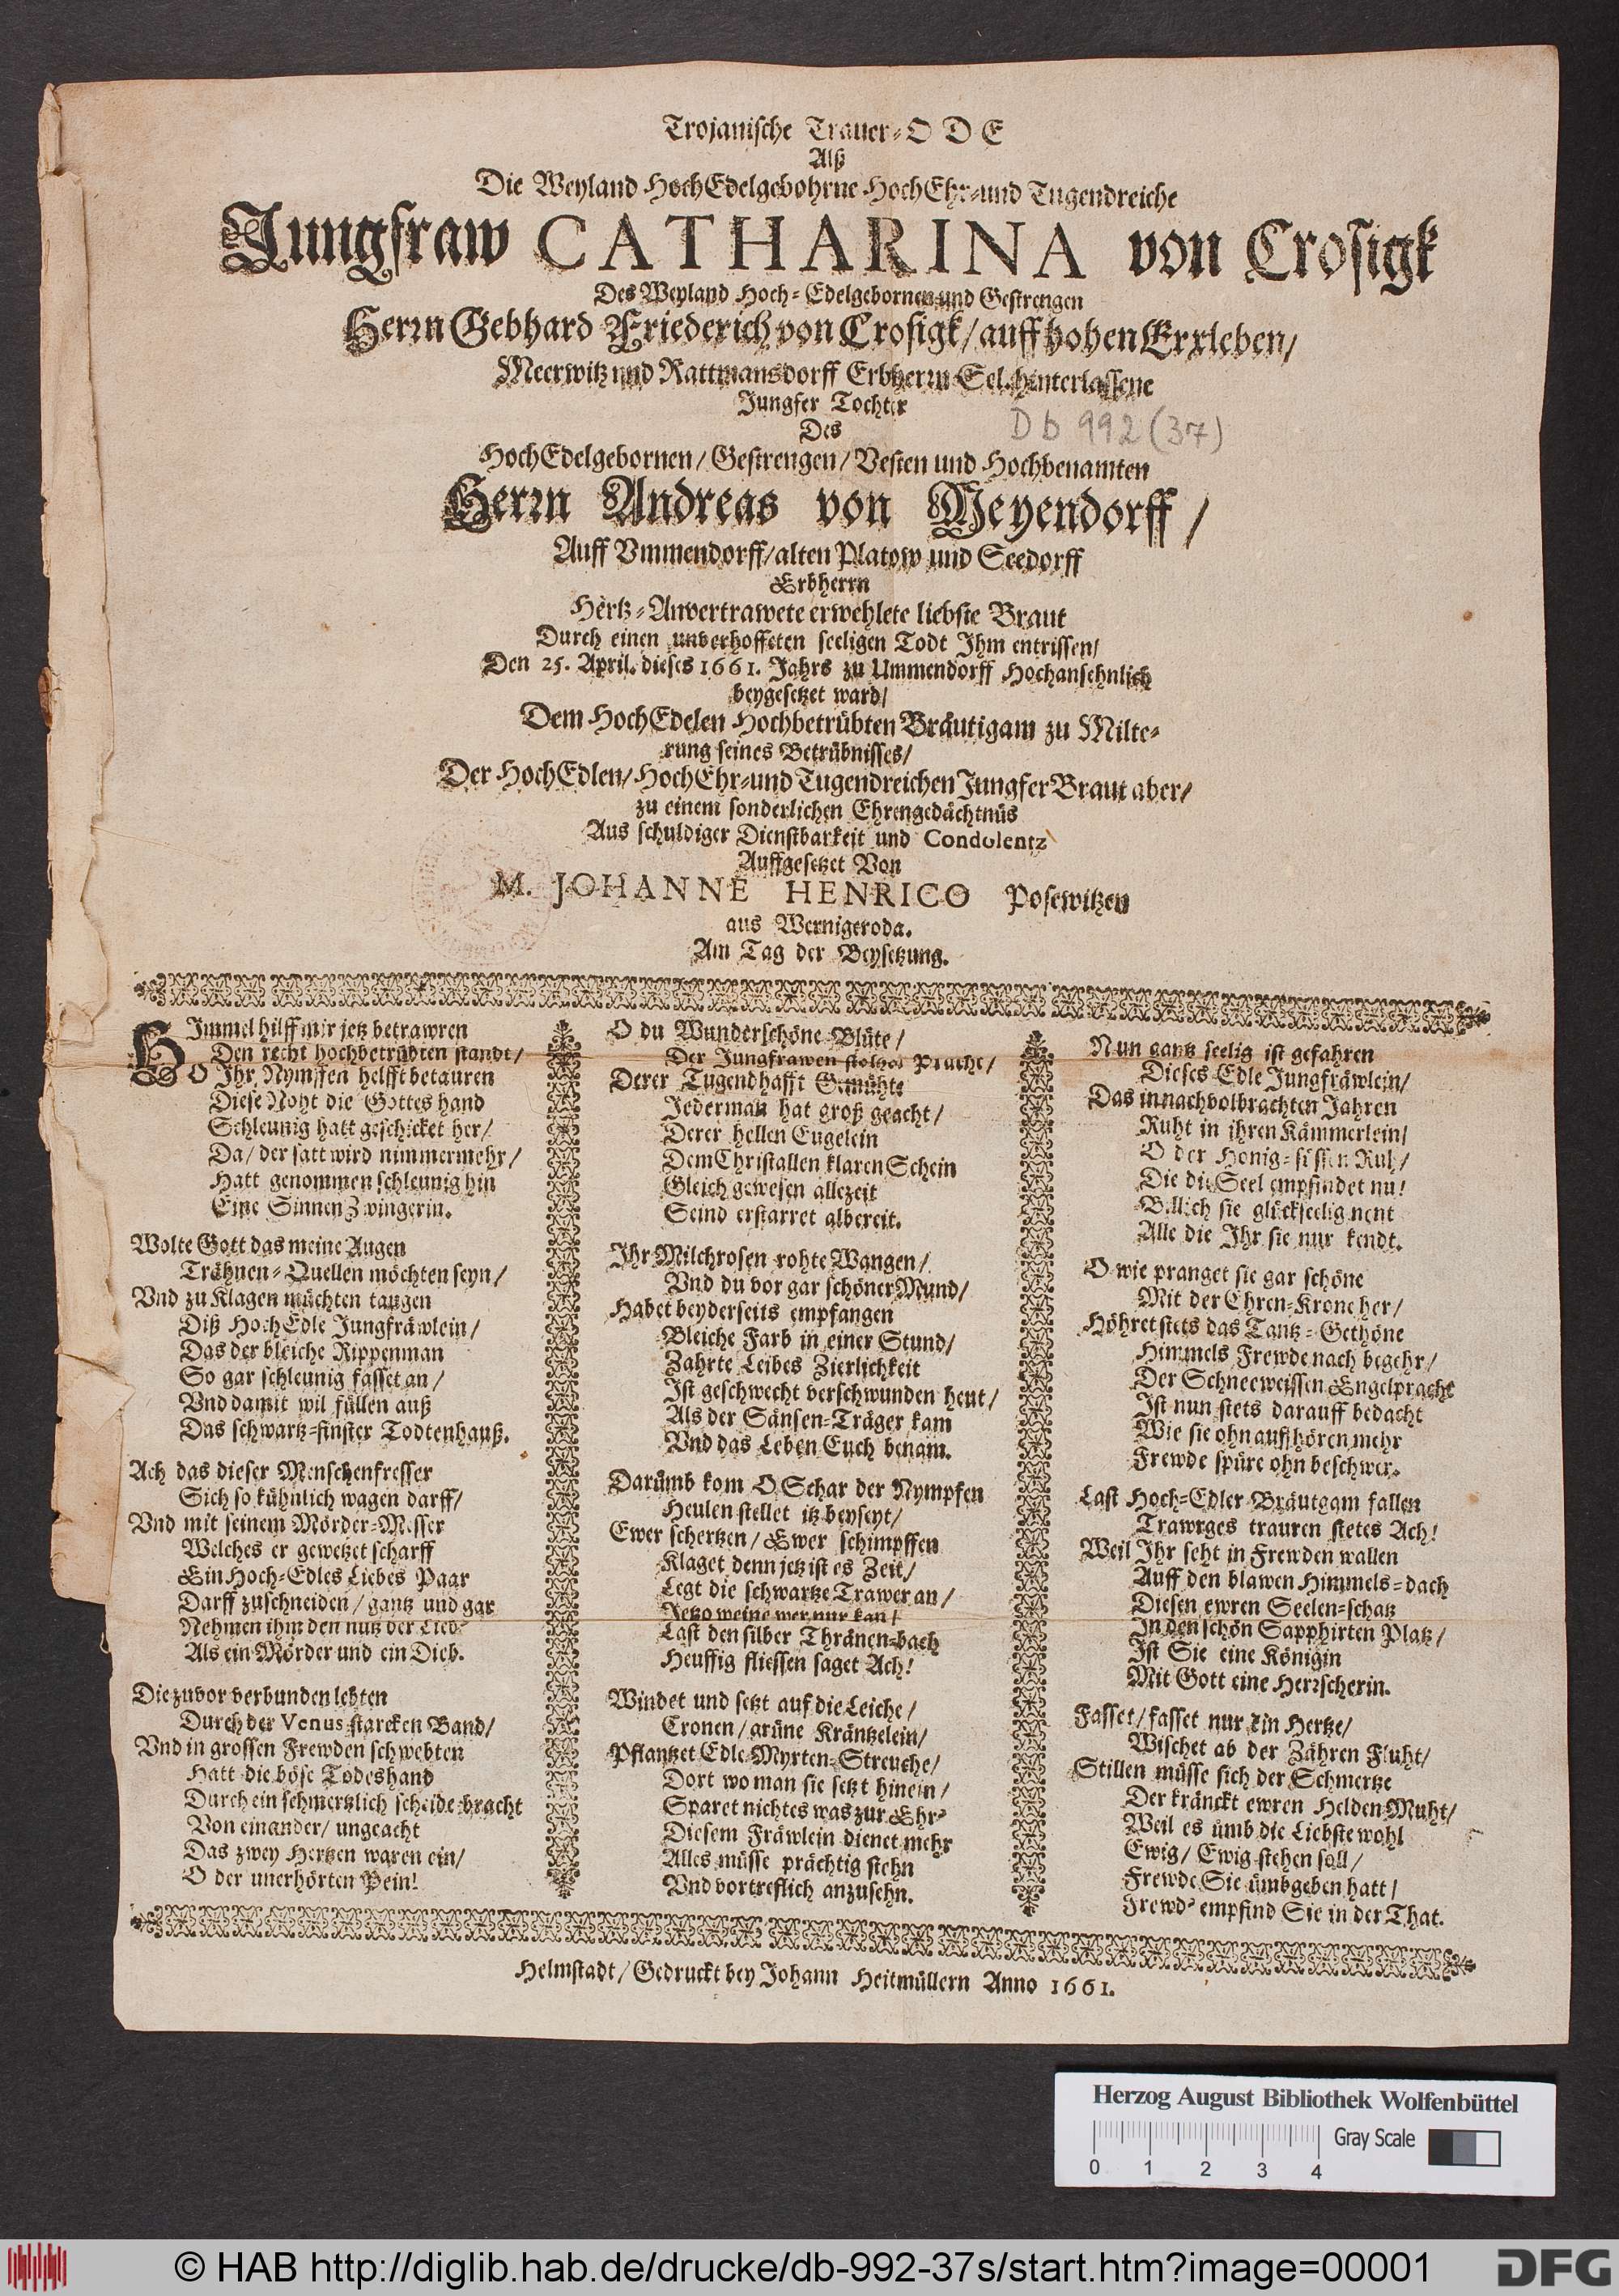 Trojanische Trauer-ODE
Alß
Die Weyland HochEdelgebohrne HochEhr-und Tugendreiche
Jungfraw CATHARINA von Crosigk
Des Weyland Hoch-Edelgebornen und Gestrengen
Herrn Gebhard Friederich von Crosigk/ auff hohen Erxleben/
Meerwitz und Rattmansdorff Erbherrn Sel. hinterlassene
Jungfer Tochter
Des
Db 992 (37)
HochEdelgebornen/ Gestrengen/ Vesten und Hochbenamten
Herrn Andreas von Meyendorff/
Auff Vmmendorff/ alten Platow und Seedorff
Erbherrn
Hertz-Anvertrawete erwehlete liebste Braut
Durch einen unverhoffeten seeligen Todt Ihm entrissen/
Den 25. April. dieses 1661. Jahrs zu Ummendorff Hochansehnlich
beygesetzet ward/
Dem HochEdelen Hochbetrübten Bräutigam zu Milte-
rung seines Betrübnisses/
Der HochEdlen/ HochEhr-und Tugendreichen Jungfer Braut aber/
zu einem sonderlichen Ehrengedächtnüs
Aus schuldiger Dienstbarkeit und Condolentz
Auffgesetzet Von
M. JOHANNE HENRICO Posewitzen
aus Wernigeroda.
Am Tag der Beysetzung.
HImmel hilff mir jetz betrawren
Den recht hochbetrübten standt/
O Ihr Nymffen helfft betauren
Diese Noht die Gottes hand
Schleunig hatt geschicket her/
Da/ der satt wird nimmermehr/
Hatt genommen schleunig hin
Eine Sinnen Zwingerin.
Wolte Gott das meine Augen
Trähnen-Quellen möchten seyn/
Vnd zu Klagen müchten taugen
Diß HochEdle Jungfräwlein/
Das der bleiche Rippenman
So gar schleunig fasset an/
Vnd damit wil füllen auß
Das schwartz-finster Todtenhauß.
Ach das dieser Menschenfresser
Sich so kühnlich wagen darff/
Vnd mit seinem Mörder-Messer
Welches er gewetzet scharff
Ein Hoch-Edles Liebes Paar
Darff zuschneiden/ gantz und gar
Nehmen ihm den nutz der Lieb-
Als ein Mörder und ein Dieb.
Die zuvor verbunden lebten
Durch der Venus starcken Band/
Vnd in grossen Frewden schwebten
Hatt die böse Todeshand
Durch ein schmertzlich scheide bracht
Von einander/ ungeacht
Das zwey Hertzen waren ein/
O der unerhörten Pein!
O du Wunderschöne Blüte/
Der Jungfrawen stoltzer Pracht/
Derer Tugendhafft Gemühte
Jederman hat groß geacht/
Derer hellen Eugelein
Dem Christallen klaren Schein
Gleich gewesen allezeit
Seind erstarret albereit.
Ihr Milchrosen rohte Wangen/
Vnd du vor gar schöner Mund/
Habet beyderseits empfangen
Bleiche Farb in einer Stund/
Zahrte Leibes Zierlichkeit
Ist geschwecht verschwunden heut/
Als der Sänsen-Träger kam
Vnd das Leben Euch benam.
Darümb kom O Schar der Nympfen
Heulen stellet itz beyseyt/
Ewer schertzen/ Ewer schimpffen
Klaget denn jetz ist es Zeit/
Legt die schwartze Trawer an/
Jetzo weine wer nur kan/
Last den silber Thränen-bach
Heuffig fliessen saget Ach!
Windet und setzt auf die Leiche/
Cronen/ grüne Kräntzelein/
Pflantzet Edle Myrten-Streuche/
Dort wo man sie setzt hinein/
Sparet nichtes was zur Ehr-
Diesem Fräwlein dienet mehr
Alles müsse prächtig stehn
Vnd vortreflich anzusehn.
Nun gantz seelig ist gefahren
Dieses Edle Jungfräwlein/
Das in nachvolbrachten Jahren
Ruht in ihren Kämmerlein/
O der Honig-süssen Ruh/
Die die Seel empfindet nu!
Billich sie glückseelig nent
Alle die Ihr sie nur kendt.
O wie pranget sie gar schöne
Mit der Ehren-Krone her/
Höhret stets das Tantz-Gethöne
Himmels Frewde nach begehr/
Der Schneeweissen Engelpracht
Ist nun stets darauff bedacht
Wie sie ohn auffhören mehr
Frewde spüre ohn beschwer.
Last Hoch-Edler Bräutgam fallen
Trawrges trauren stetes Ach!
Weil Ihr seht in Frewden wallen
Auff den blawen Himmels-dach
Diesen ewren Seelen-schatz
In den schön Sapphirten Platz/
Ist Sie eine Königin
Mit Gott eine Herrscherin.
Fasset/ fasset nur ein Hertze/
Wischet ab der Zähren Fluht/
Stillen müsse sich der Schmertze
Der kränckt ewren Helden Muht/
Weil es ümb die Liebste wohl
Ewig/ Ewig stehen soll/
Frewde Sie ümbgeben hatt/
Frewd- empfind Sie in der That.
Helmstadt/ Gedruckt bey Johann Heitmüllern Anno 1661.
Herzog August Bibliothek Wolfenbüttel
Gray Scale
0 1 2 3 4
© HAB http://diglib.hab.de/drucke/db-992-37s/start.htm?image=00001
DFG